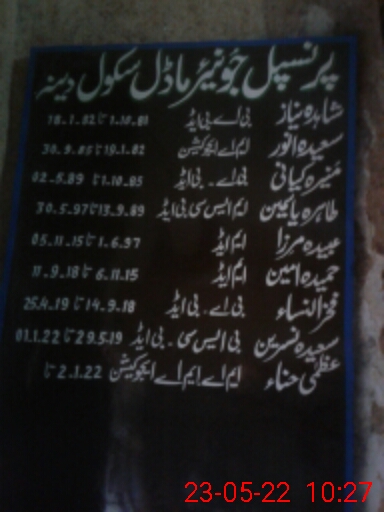 پرنسپل جونیئر ماڈل سکول دینہ
شاہدہ نیاز بی اے بی ایڈ 1.10.81 تا 18.1.82
سعیدہ انور ایم اے ایجوکیشن 19.1.82 تا 30.9.85
منیرہ کیانی بی اے ۔ بی ایڈ 1.10.85 تا 02.5.89
طاہرہ یاسمین ایم ایس سی بی ایڈ 13.9.89 تا 30.5.97
عبیدہ مرزا ایم ایڈ 1.6.97 تا 05.11.15
حمیدہ امین ایم ایڈ 6.11.15 تا 11.9.18
فخرالنساء بی اے ۔ بی ایڈ 14.9.18 تا 25.4.19
سعیدہ نسرین بی ایس سی ۔ بی ایڈ 29.5.19 تا 01.1.22
عظمیٰ حناء ایم اے ایم اے ایجوکیشن 2.1.22 تا
23-05-22 10:27